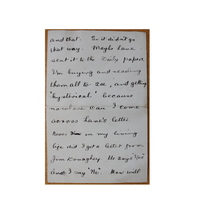 and that. So it didn't go
that way. Maybe have
sent it to the Daily papers,
I'm buying and reading
them all to see, and getting
"hysterical" because
nowhere can I come
across Lane's letter.
Even in my living
life did I get a letter from
Jim Connaghey. He says "Yes"
and I say "No". How will